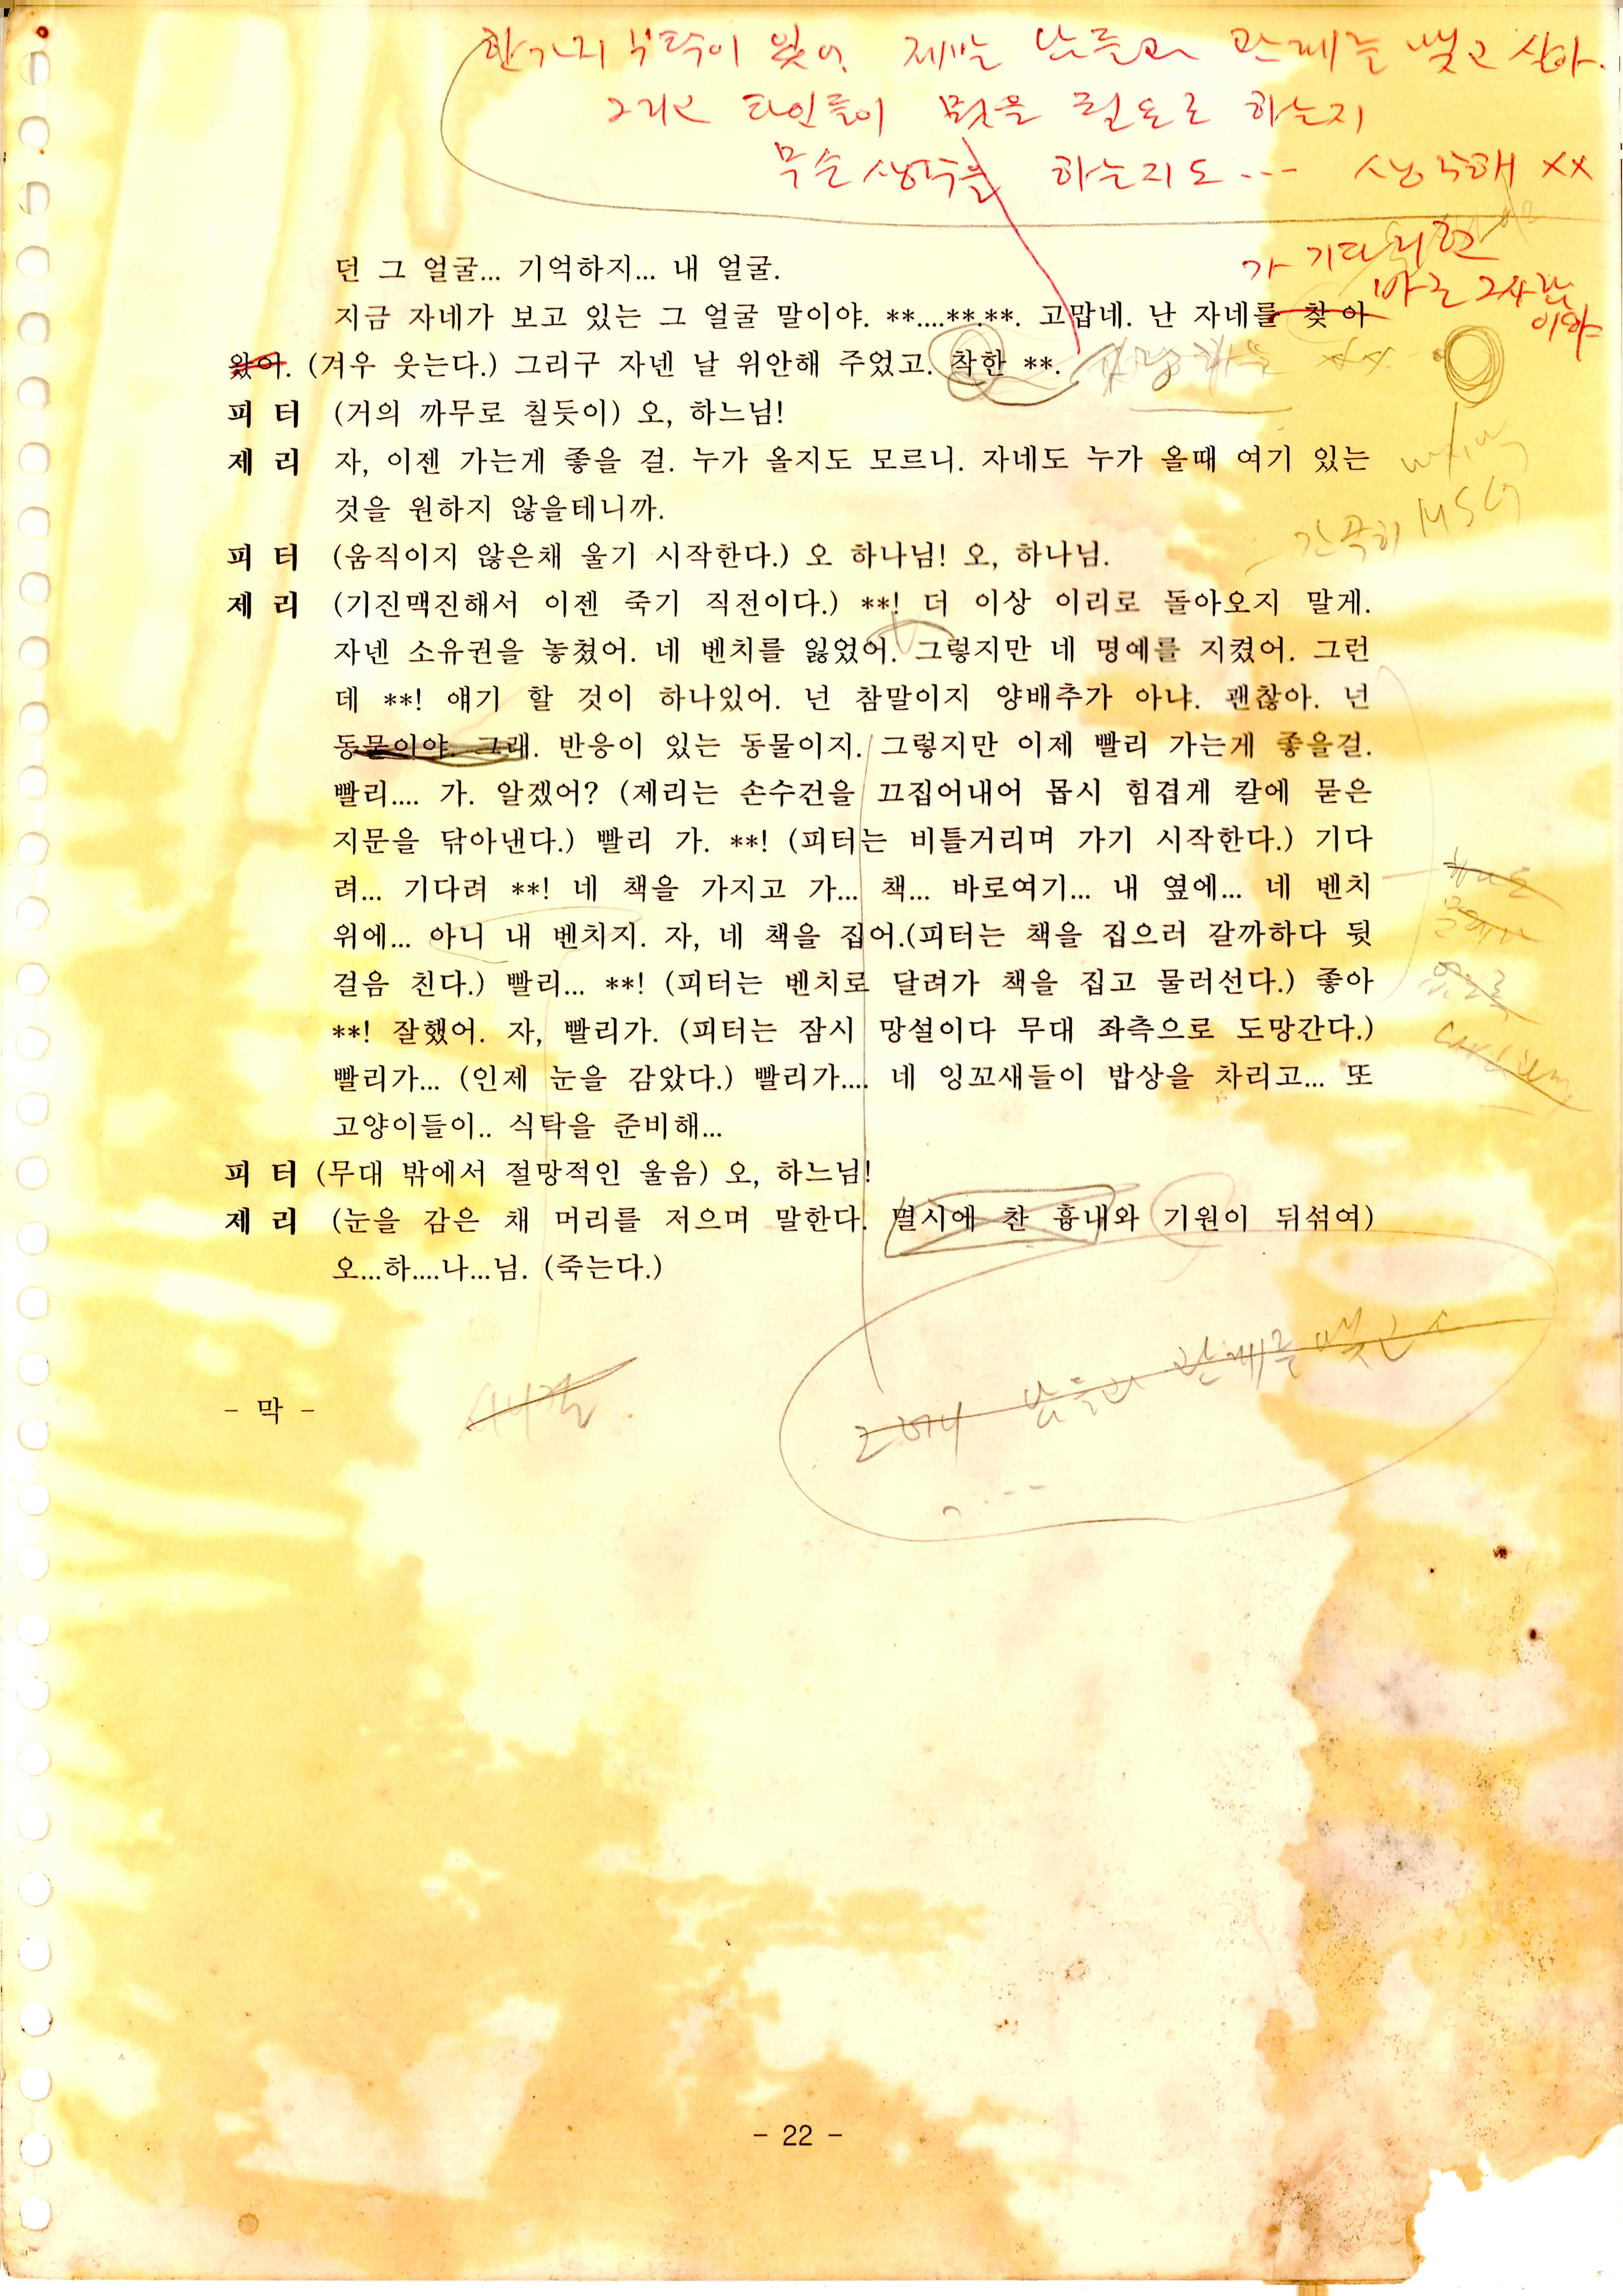 한가지 부탁이 있어. 제발 남들과 관계를 맺고 살아.
그리고 타인들이 무엇을 필요로 하는지
무슨 생각을 하는지도... 생각해 xx
던 그 얼굴... 기억하지... 내 얼굴.
가 기다려현
바로 그사람
이야
지금 자네가 보고 있는 그 얼굴 말이야. **....**.**. 고맙네. 난 자네를 찾아
왔어. (겨우 웃는다.) 그리구 자넨 날 위안해 주었고. 착한 **.
피 터 (거의 까무로 칠듯이) 오, 하느님!
제 리 자, 이젠 가는게 좋을 걸. 누가 올지도 모르니. 자네도 누가 올때 여기 있는
것을 원하지 않을테니까.
간곡히 MSG
피 터 (움직이지 않은채 울기 시작한다.) 오 하나님! 오, 하나님.
제 리 (기진맥진해서 이젠 죽기 직전이다.) **! 더 이상 이리로 돌아오지 말게.
자넨 소유권을 놓쳤어. 네 벤치를 잃었어. 그렇지만 네 명예를 지켰어. 그런
데 **! 얘기 할 것이 하나있어. 넌 참말이지 양배추가 아냐. 괜찮아. 넌
동물이야. 그래. 반응이 있는 동물이지. 그렇지만 이제 빨리 가는게 좋을걸.
빨리.... 가. 알겠어? (제리는 손수건을 끄집어내어 몹시 힘겹게 칼에 묻은
지문을 닦아낸다.) 빨리 가. **! (피터는 비틀거리며 가기 시작한다.) 기다
려... 기다려 **! 네 책을 가지고 가... 책... 바로여기... 내 옆에... 네 벤치
위에... 아니 내 벤치지. 자, 네 책을 집어.(피터는 책을 집으러 갈까하다 뒷
걸음 친다.) 빨리... **! (피터는 벤치로 달려가 책을 집고 물러선다.) 좋아
**! 잘했어. 자, 빨리가. (피터는 잠시 망설이다 무대 좌측으로 도망간다.)
빨리가... (인제 눈을 감았다.) 빨리가.... 네 잉꼬새들이 밥상을 차리고... 또
고양이들이.. 식탁을 준비해...
피 터 (무대 밖에서 절망적인 울음) 오, 하느님!
제 리 (눈을 감은 채 머리를 저으며 말한다. 멸시에 찬 흉내와 기원이 뒤섞여)
오...하....나...님. (죽는다.)
남들과 관계를 맺고
- 막 -
- 22 -